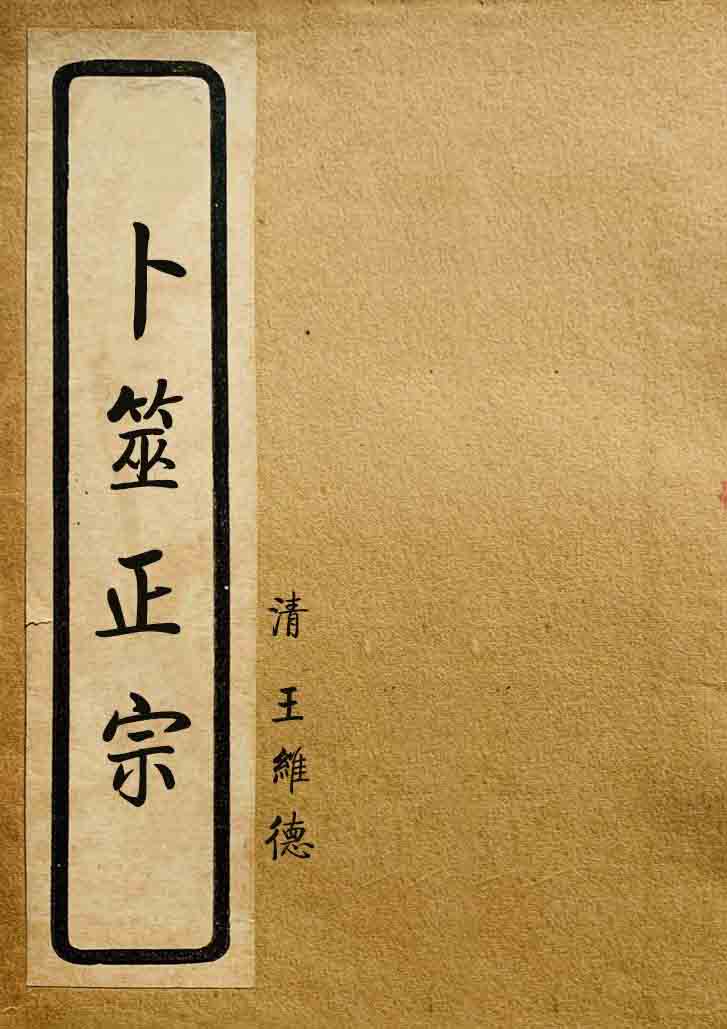 卜筮正宗
清 王維德